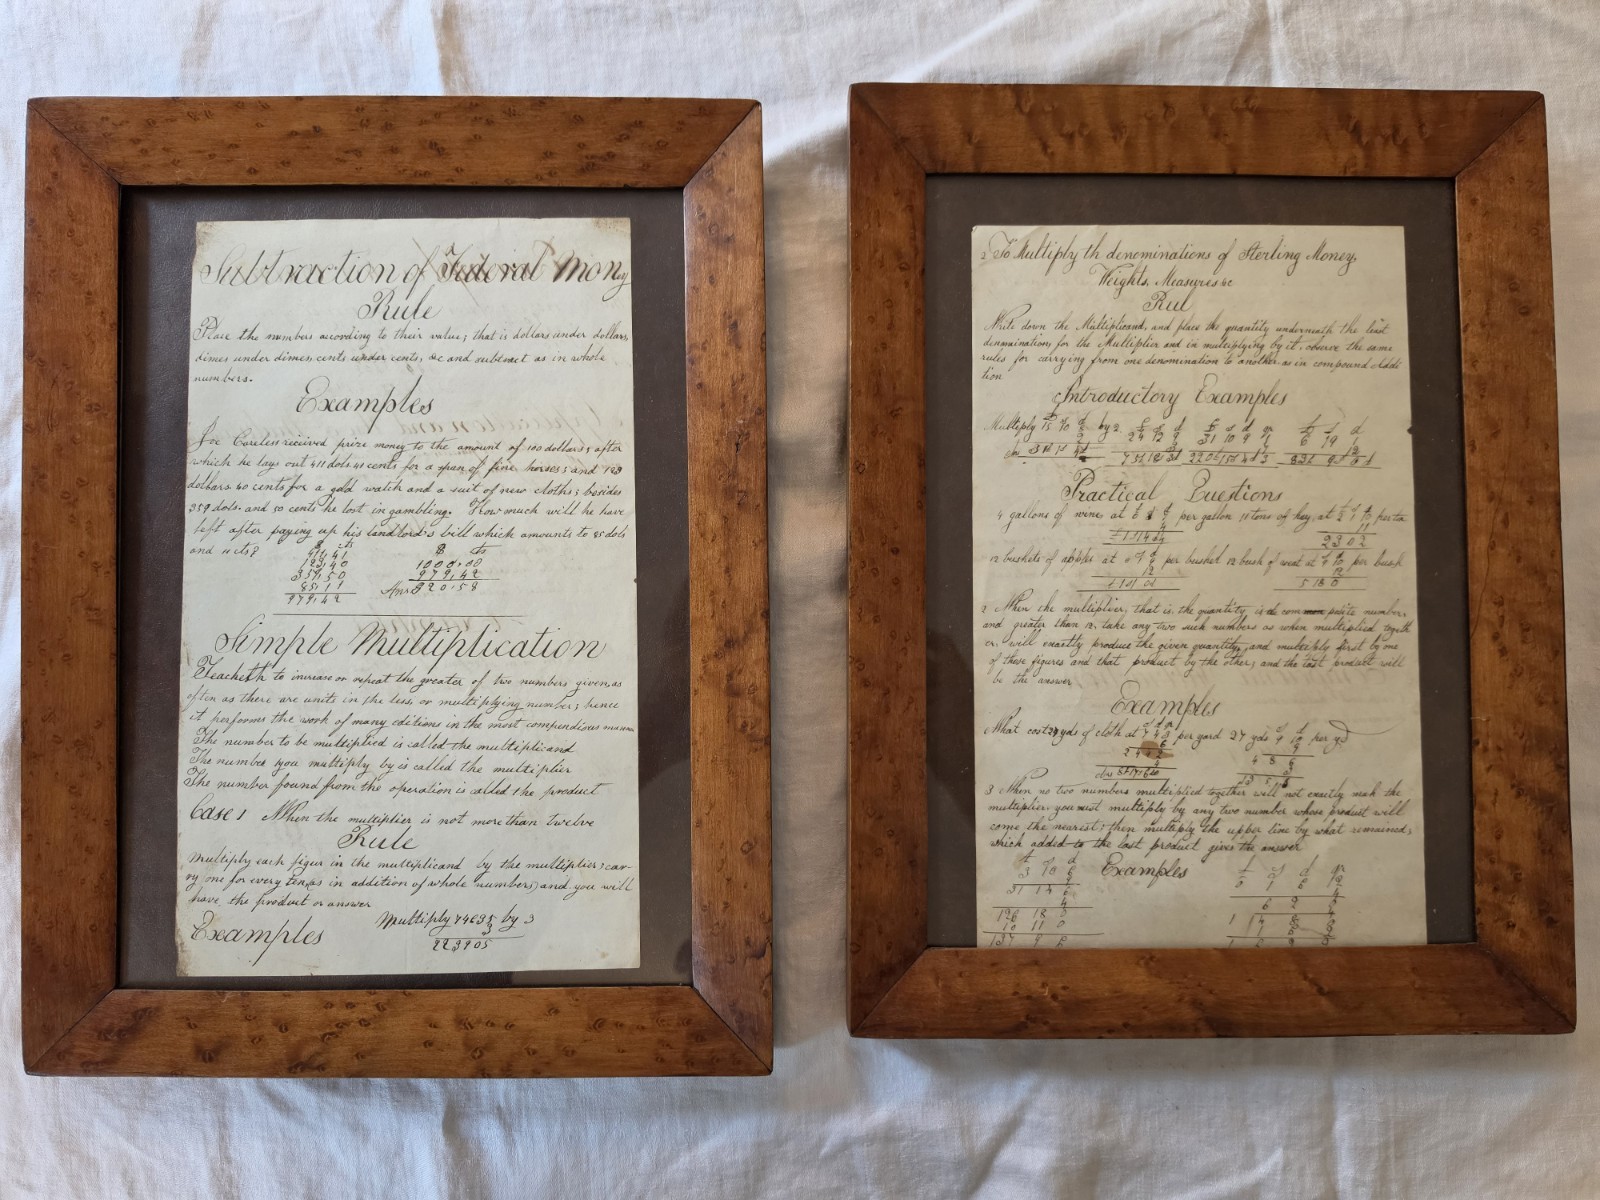 Subtraction of Federal Money
Rule
Place the numbers according to their value; that is dollars under dollars,
dimes under dimes, cents under cents, &c and subtract as in whole
numbers.
Examples
Joe Careless received prize money to the amount of 1000 dollars; after
which he lays out 411 dols. 41 cents for a span of fine horses; and 123
dollars 40 cents for a gold watch and a suit of new cloths; besides
359 dols. and 50 cents he lost in gambling. How much will he have
left after paying up his landlord's bill which amounts to 85 dols
and 11 cts?
$ cts
411,41
123,40
359,50
85,11
979,42
$ cts
1000,00
979,42
Ans 020.58
Simple Multiplication
Teacheth to increase or repeat the greater of two numbers given, as
often as there are units in the less, or multiplying number; hence
it performs the work of many editions in the most compendious manner
The number to be multiplied is called the multiplicand
The number you multiply by is called the multiplier
The number found from the operation is called the product
Case 1 When the multiplier is not more than twelve
Rule
Multiply each figur in the multiplicand by the multiplier; car-
ry one for every ten, (as in addition of whole numbers) and you will
have the product or answer
Examples
Multiply 74635 by 3
3
223905
2 To Multiply th denominations of Sterling Money,
Weights, Measures &c
Rul
Write down the Multiplicand, and place the quantity underneath the least
denomination, for the Multiplier and in multiplying by it, observe the same
rules for carrying from one denomination to another as in compound Addi
tion
Introductory Examples
Multiply by 2
24 12 9
31 10 9 1
6 19 1
Practical Questions
4 gallons of wine at per gallon 11 tons of hay, at per ton
11
2302
12 bushels of apples at per bushel 12 bush of weat at per bush
12
12
5 18 0
2 When the multiplier, that is, the quantity, is a composite number,
and greater than 12, take any two such numbers as when multiplied togeth
er, will exactly produce the given quantity, and multiply first by one
of those figures and that product by the other; and the last product will
be the answer
Examples
What cost yds of cloth at 7 4 3 per yard 27 yds per yd
3 When no two numbers multiplied together will not exactly mak the
multiplier, you must multiply by any two number whose product will
come the nearest; then multiply the upper line by what remained;
which added to the last product gives the answer
Examples
3 10 6
9
31 14 6
4
126 18 0
10 11 0
137 9 6